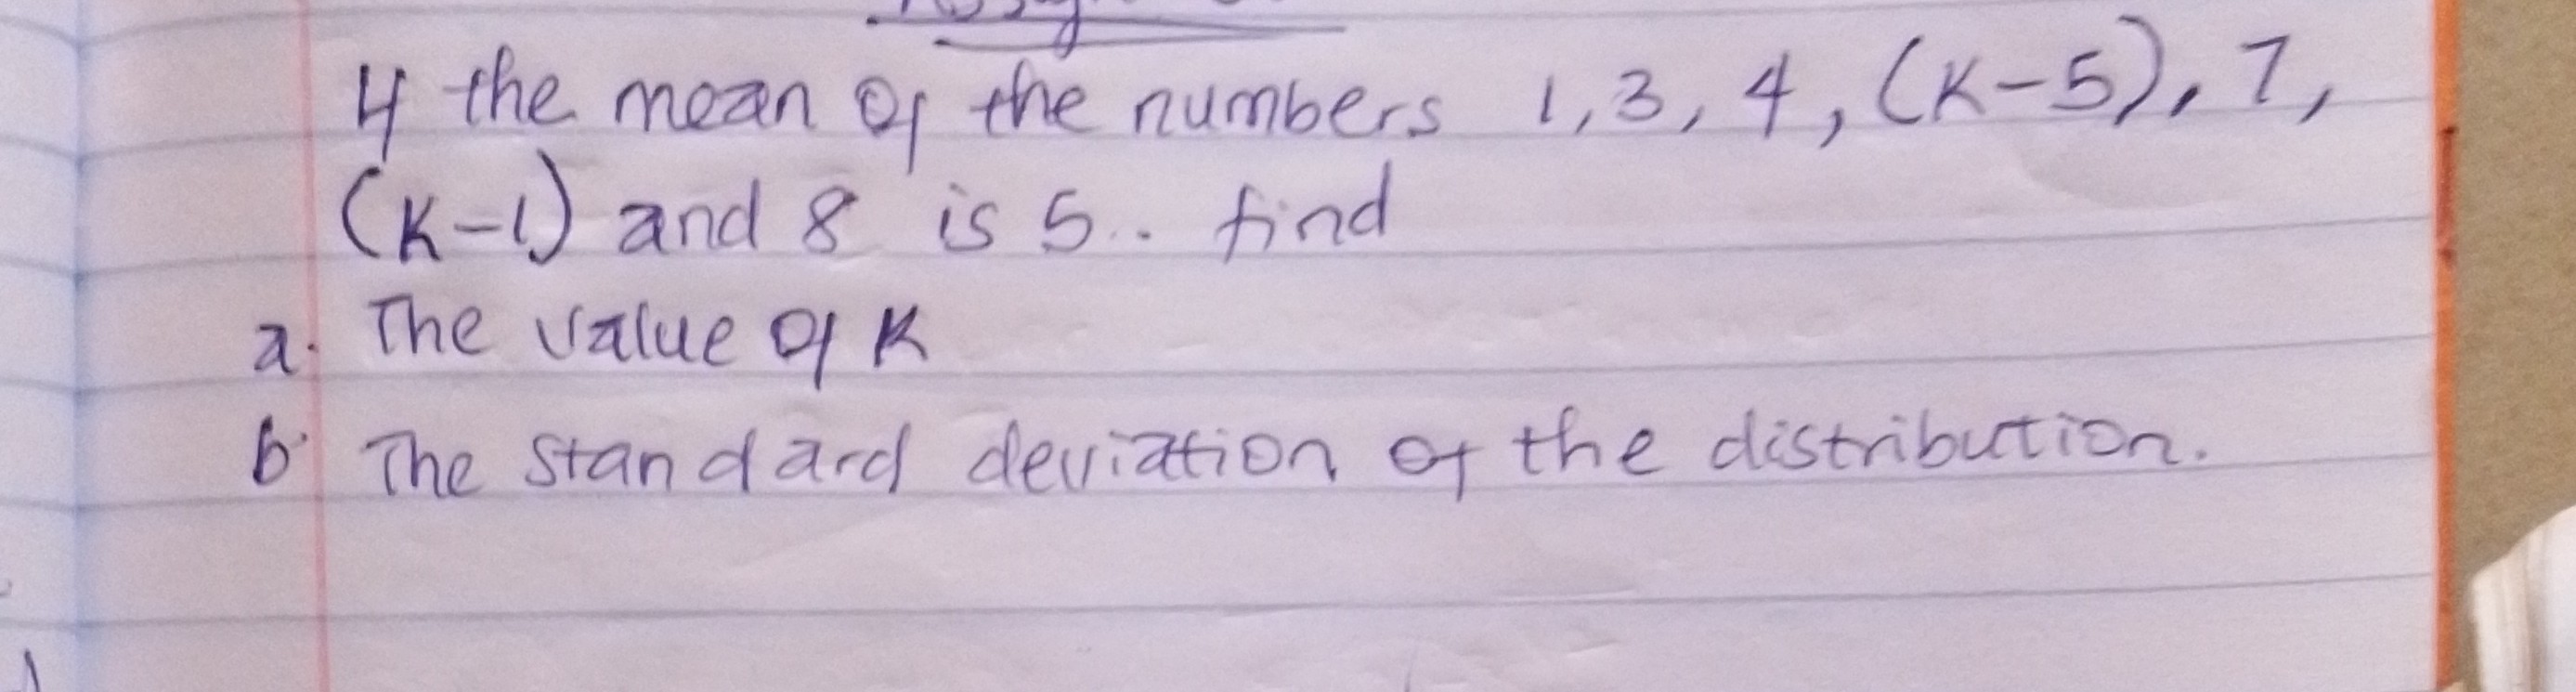 If the mean of the numbers 1, 3, 4, (K-5), 7,
(K-1) and 8 is 5.. find
a. The value of K
b. The standard deviation of the distribution.